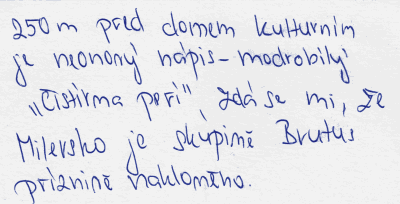 250 m pred domem kulturním
je neonový nápis - modrobílý
„Čistírna peří", zdá se mi, že
Milevsko je skupině Brutus
příznině nakloněno.